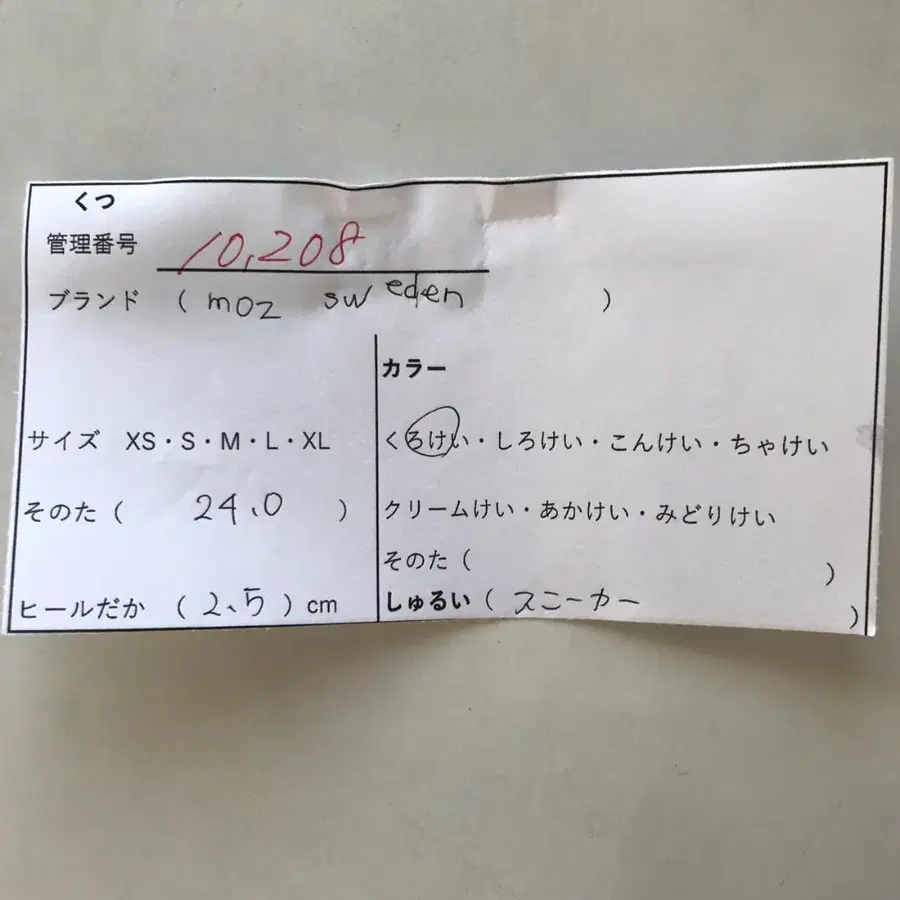 くつ
管理番号 10,208
ブランド ( moz sweden )
サイズ XS・S・M・L・XL
そのた ( 24.0 )
ヒールだか ( 2.5 ) cm
カラー
くろけい・しろけい・こんけい・ちゃけい
クリームけい・あかけい・みどりけい
そのた ( )
しゅるい ( スニーカー )